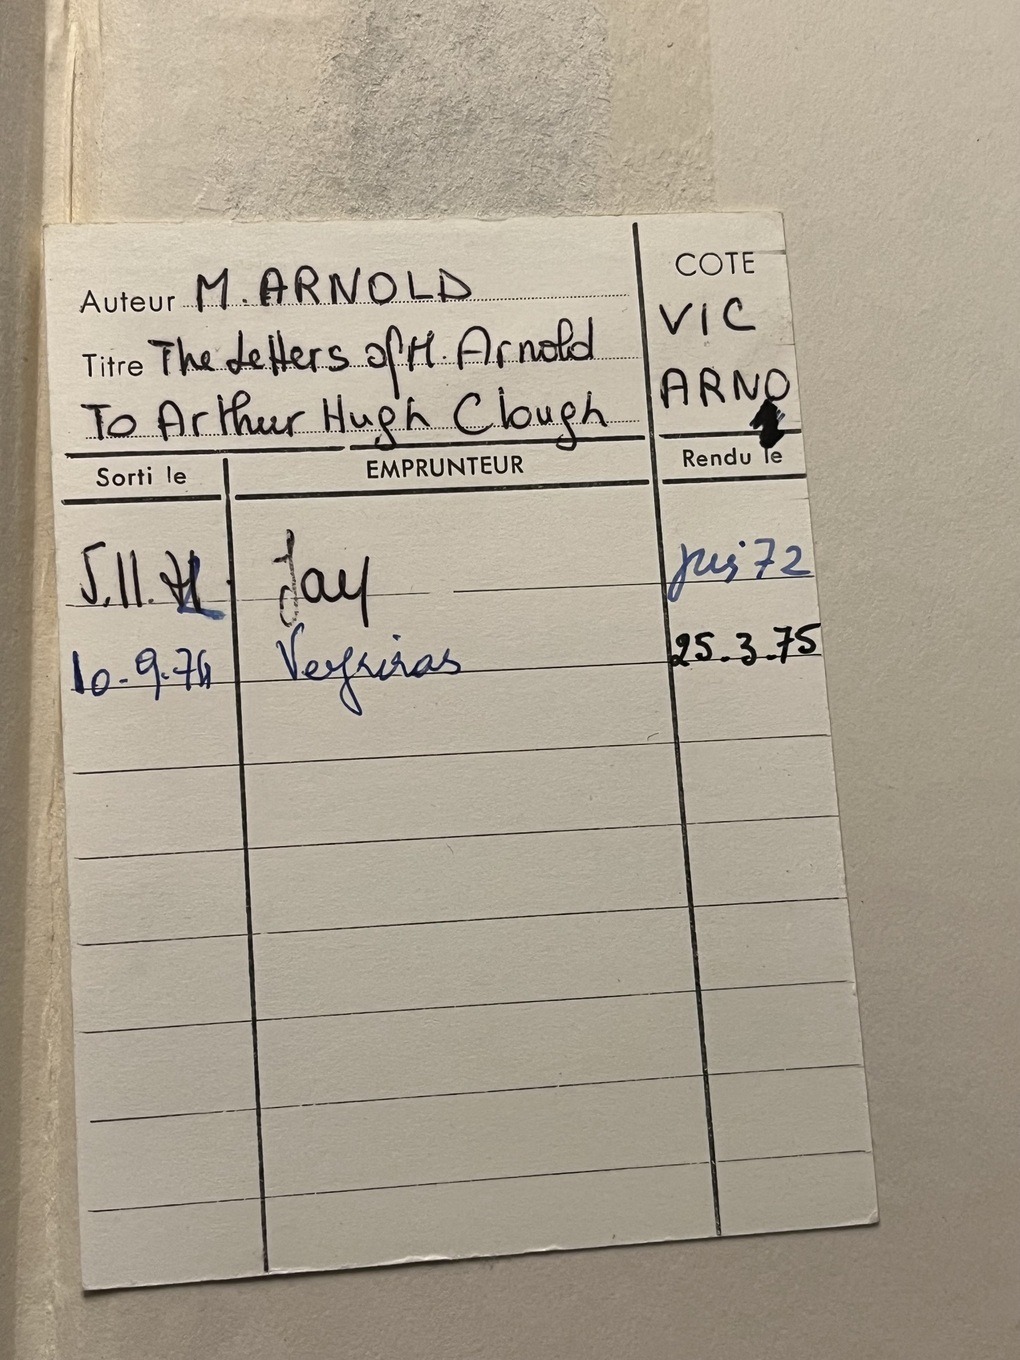 Auteur M. ARNOLD
Titre The Letters of M. Arnold
To Arthur Hugh Clough
COTE
VIC
ARNO
Sorti le EMPRUNTEUR Rendu le
5.11. Jay 72
10.9.74 25.3.75